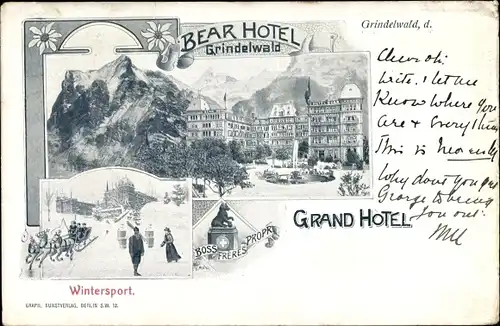 BEAR HOTEL
Grindelwald
Grindelwald, d.
write. I let me
Know where you
are & everything
This is Heavenly
Why dont you get
George to bring
you out.
BOSS FRÈRES PROPR.
GRAND HOTEL
Wintersport.
GRAPH. KUNSTVERLAG, BERLIN S.W. 12.